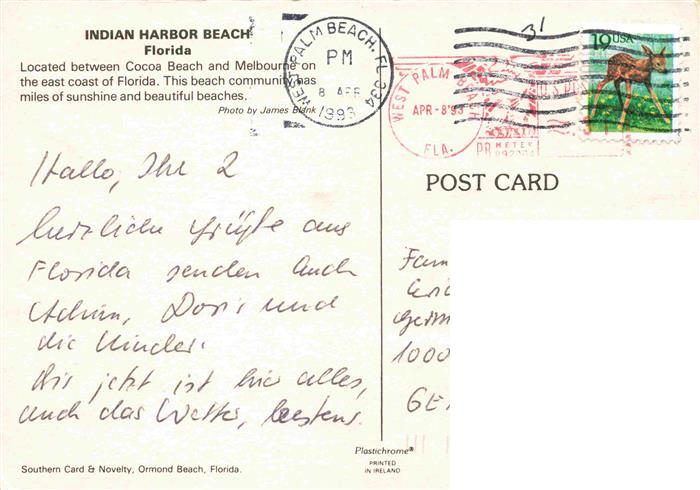 INDIAN HARBOR BEACH
Florida
Located between Cocoa Beach and Melbourne on
the east coast of Florida. This beach community has
miles of sunshine and beautiful beaches.
Photo by James Blank
WEST PALM BEACH, FL 334
PM
8 APR
1993
31
19 USA
WEST PALM B
APR -8'93
FLA.
METER
POST CARD
Hallo, Ihr 2
herzliche Grüße aus
Florida senden Euch
Achim, Doris und
die Kinder.
Bis jetzt ist hier alles,
auch das Wetter, bestens.
Fam
Germ
1000
GE
Plastichrome®
PRINTED
IN IRELAND
Southern Card & Novelty, Ormond Beach, Florida.